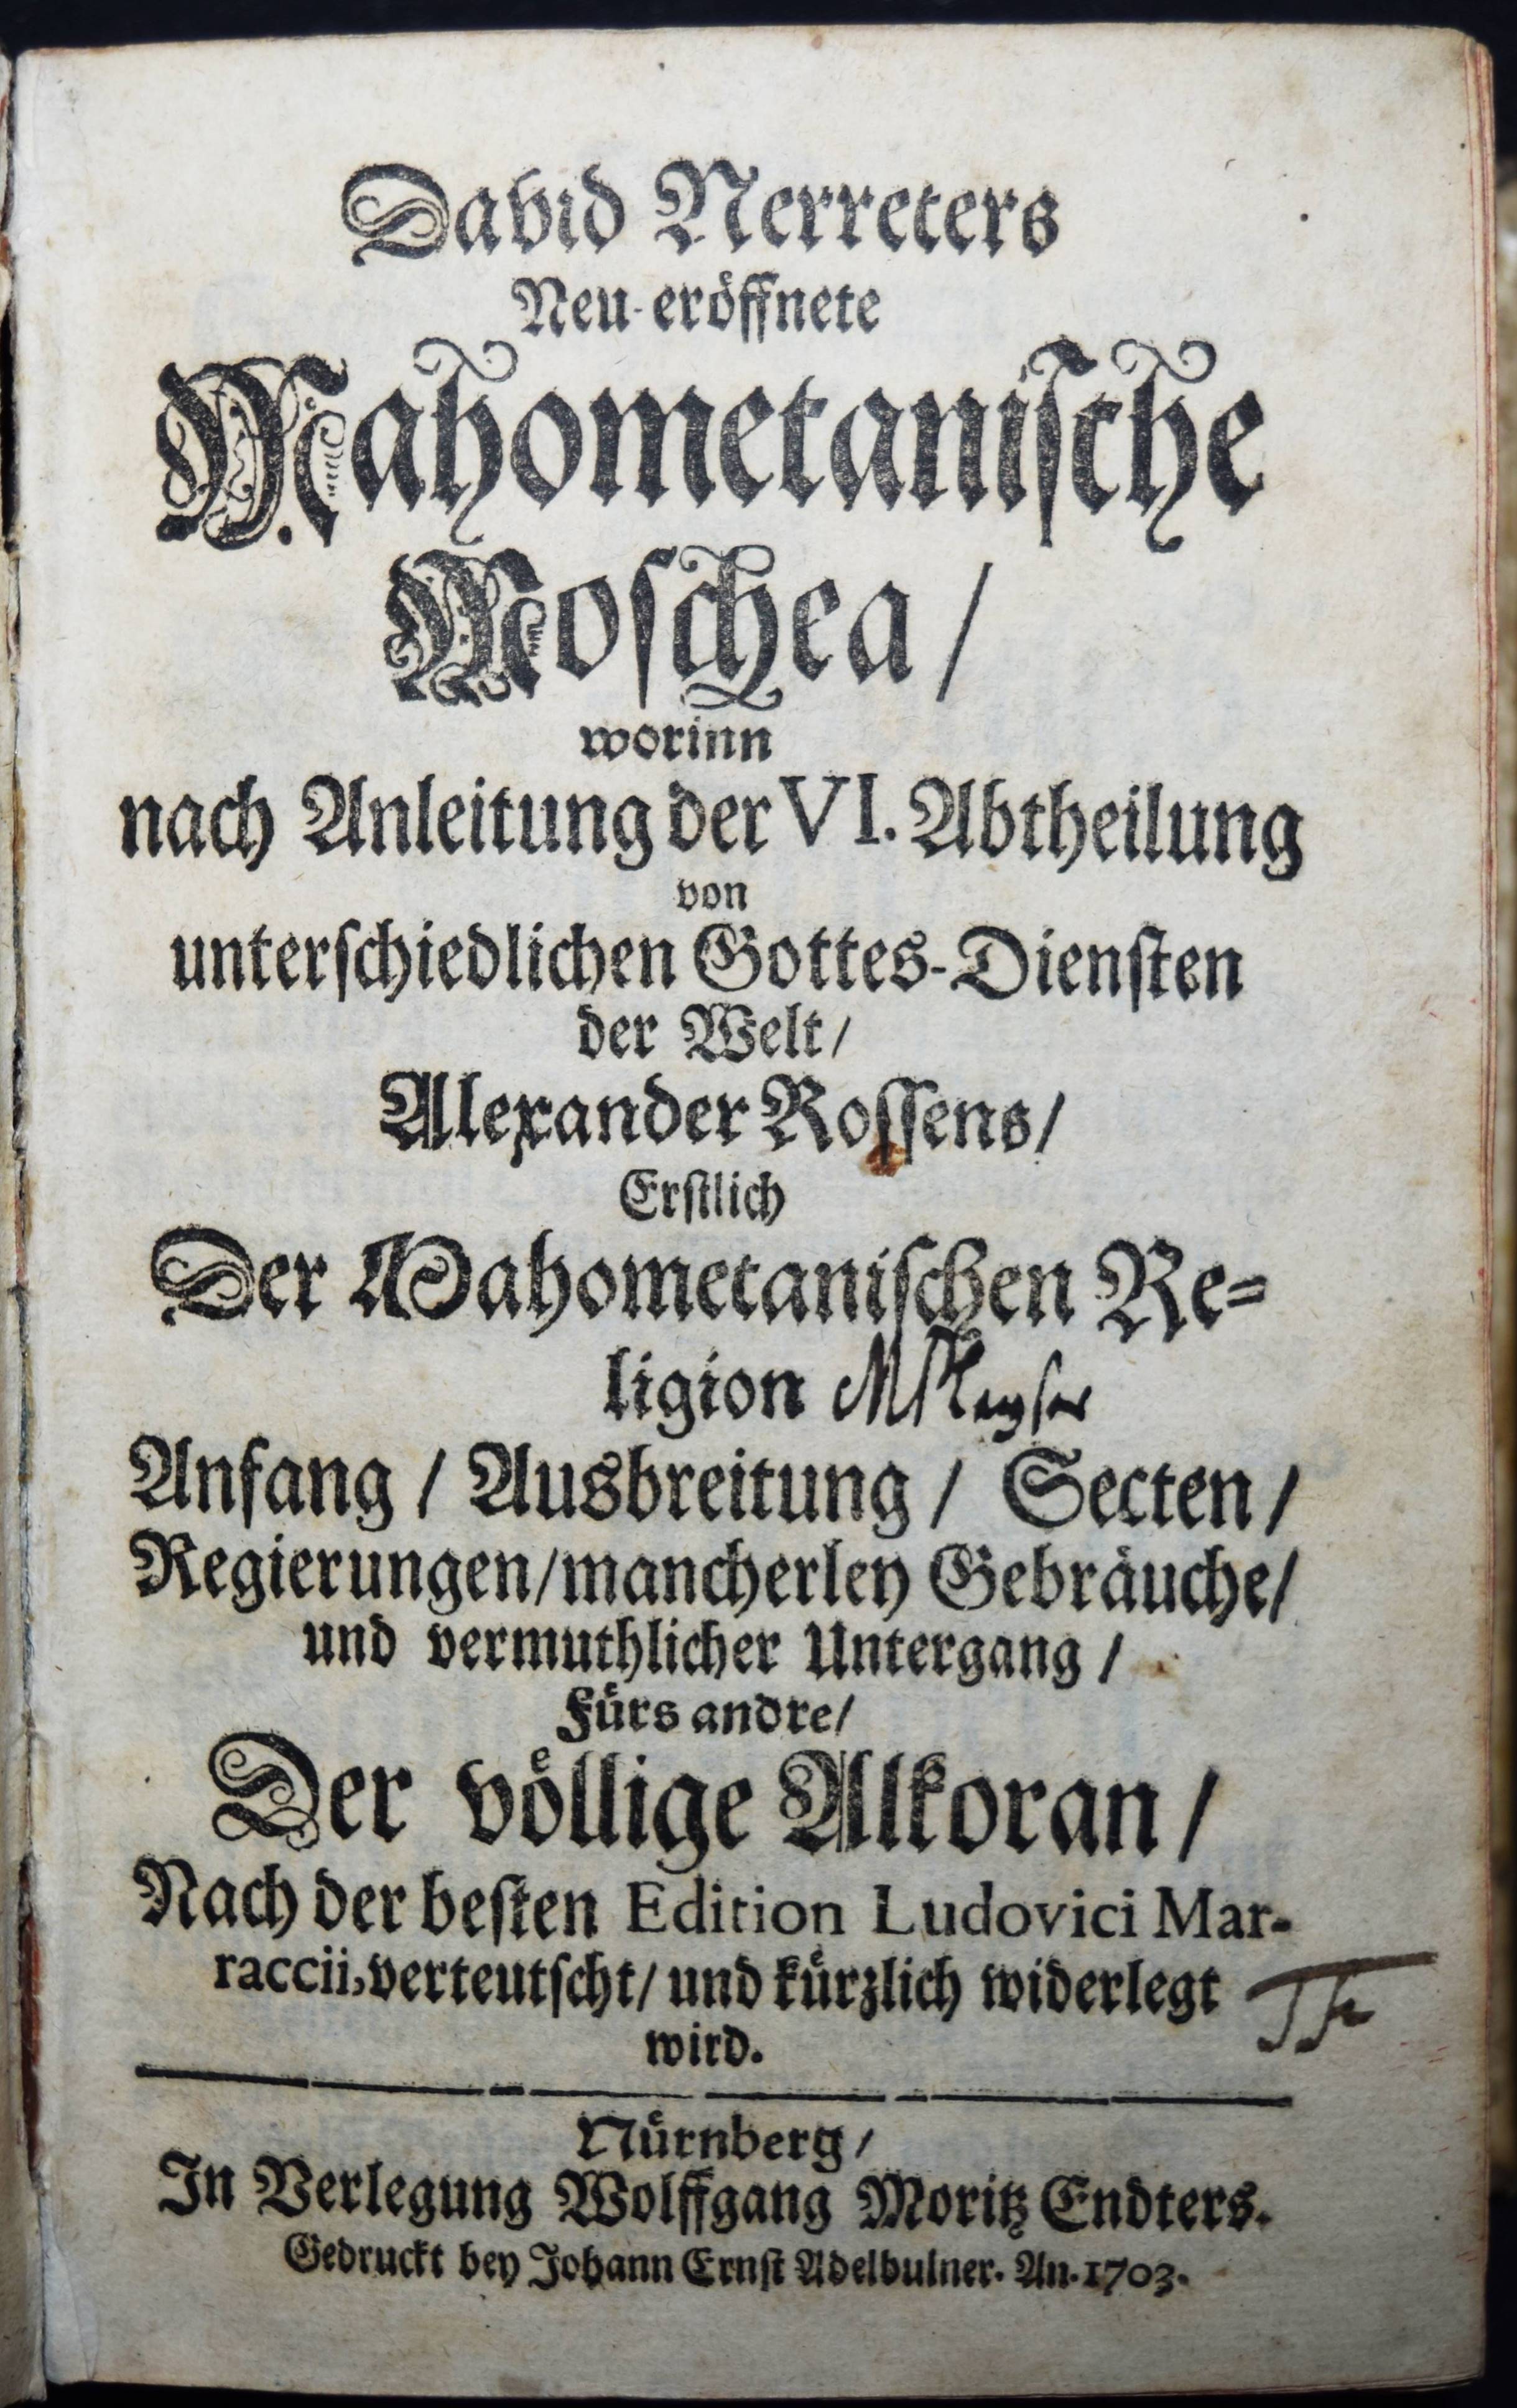 David Nerreters
Neu-eröffnete
Mahometanische
Moschea/
worinn
nach Anleitung der VI. Abtheilung
von
unterschiedlichen Gottes-Diensten
der Welt/
Alexander Rossens/
Erstlich
Der Mahometanischen Re-
ligion
Anfang / Ausbreitung / Secten /
Regierungen/mancherley Gebräuche/
und vermuthlicher Untergang /
Fürs andre/
Der völlige Alkoran /
Nach der besten Edition Ludovici Mar-
raccii, verteutscht/ und kürzlich widerlegt
wird.
Nürnberg/
In Verlegung Wolffgang Moritz Endters.
Gedruckt bey Johann Ernst Adelbulner. An. 1703.